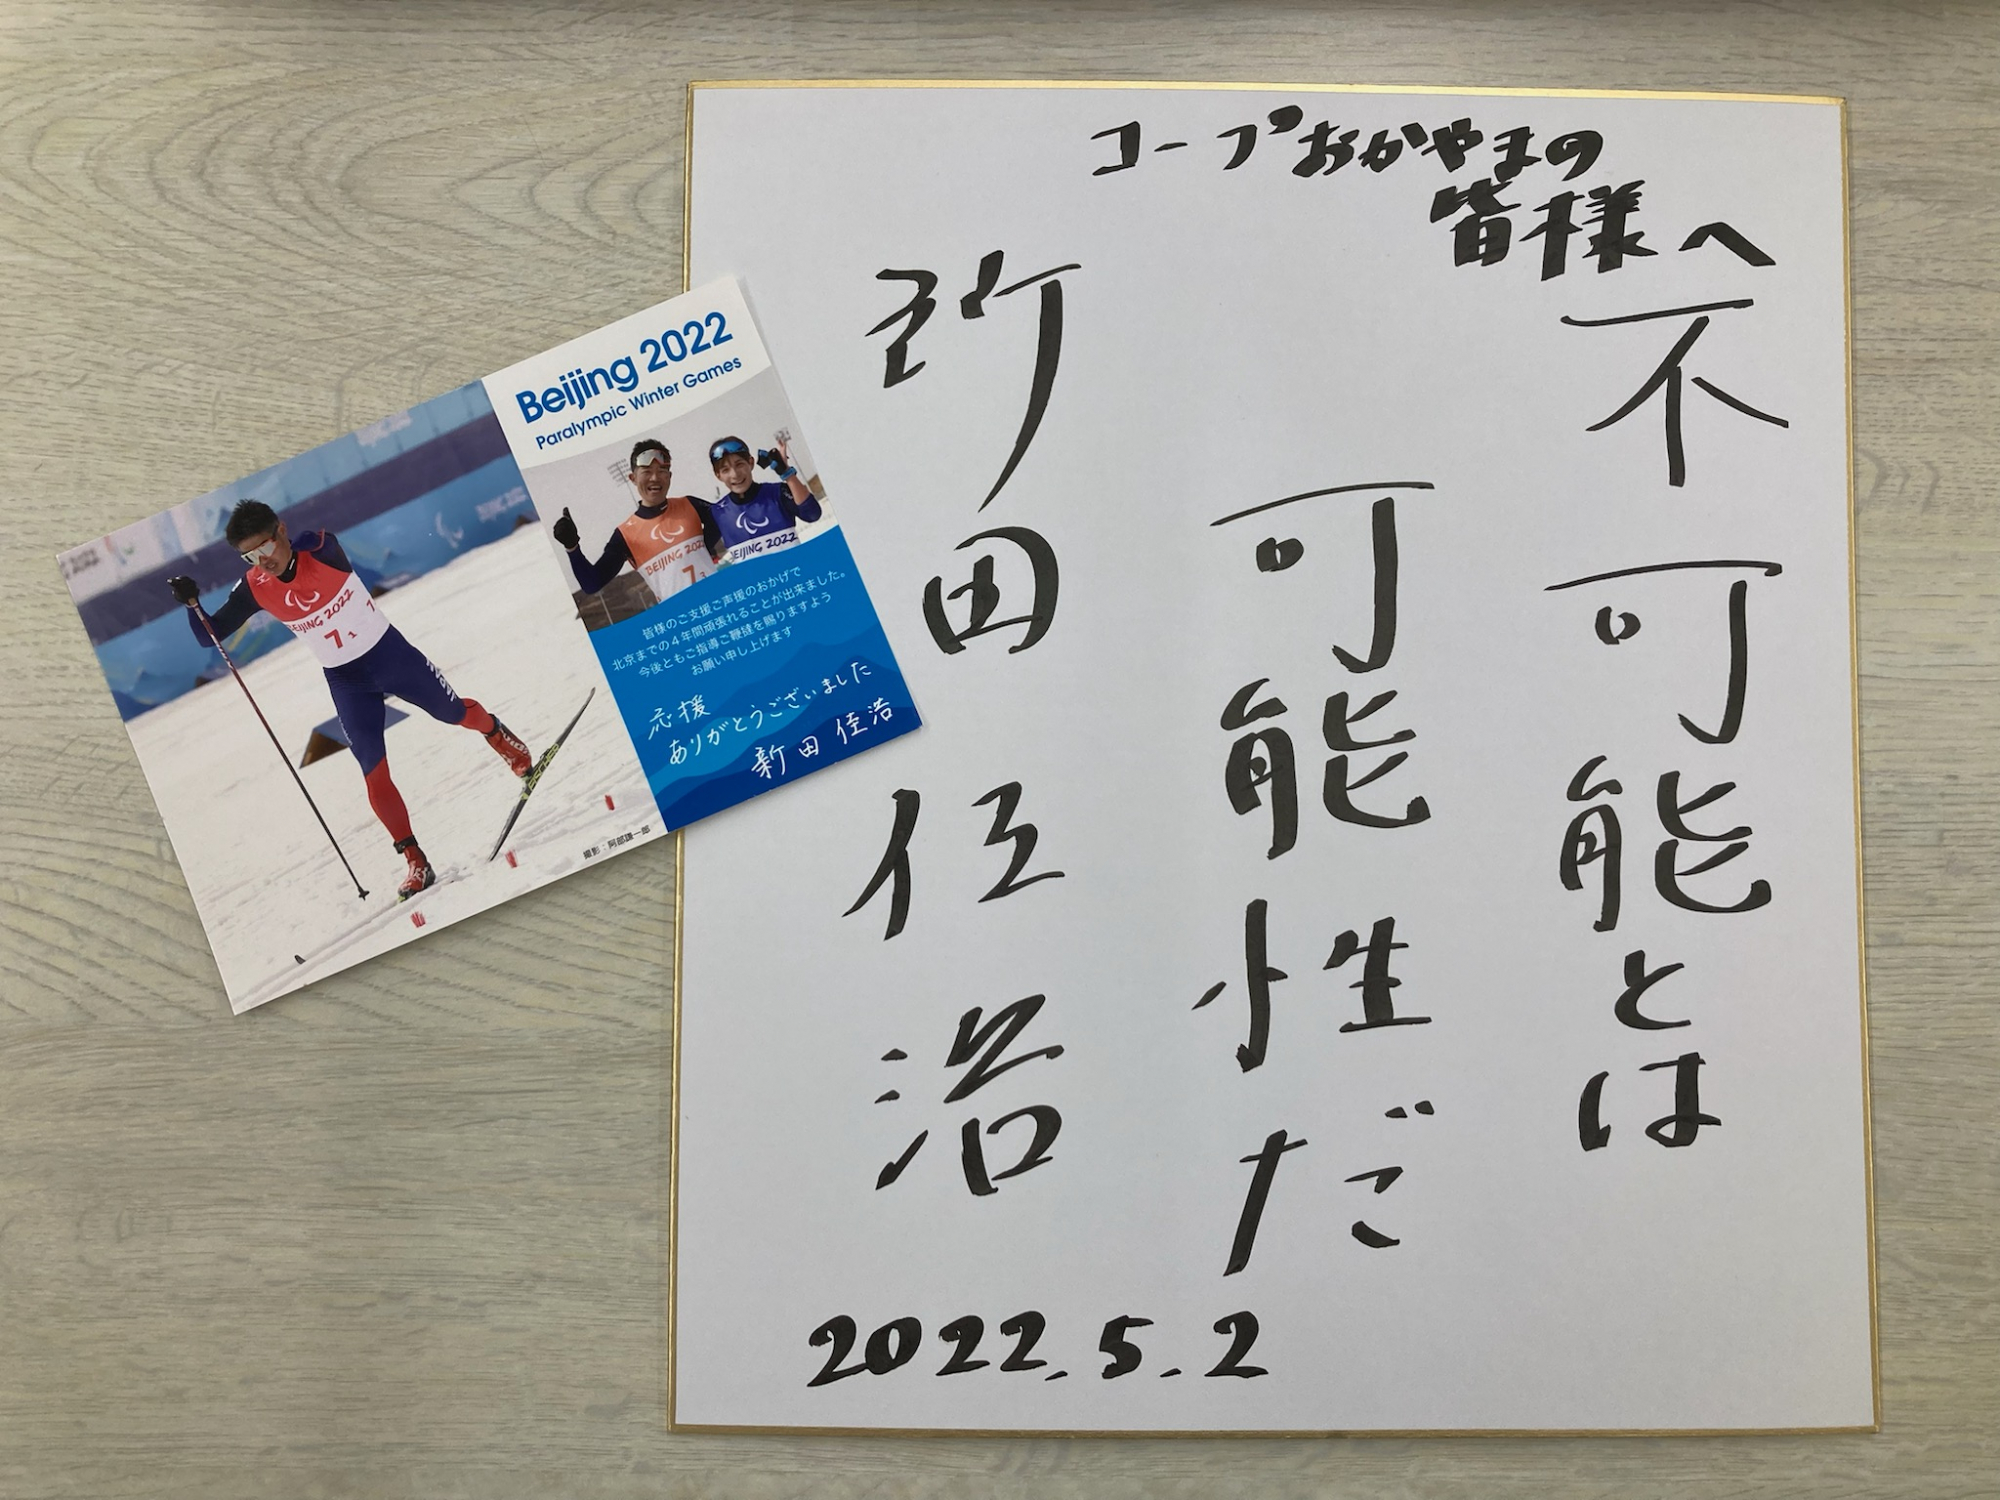 コープおかやまの
皆様へ
不可能とは
可能性だ
新田佳浩
2022.5.2
Beijing 2022
Paralympic Winter Games
BEIJING 2022
7
BEIJING 2022
BEIJING 2022
7 1
皆様のご支援ご声援のおかげで
北京までの4年間頑張れることが出来ました。
今後ともご指導ご鞭撻を賜りますよう
お願い申し上げます
応援
ありがとうございました
新田佳浩
FISCHER
撮影：阿部謙一郎